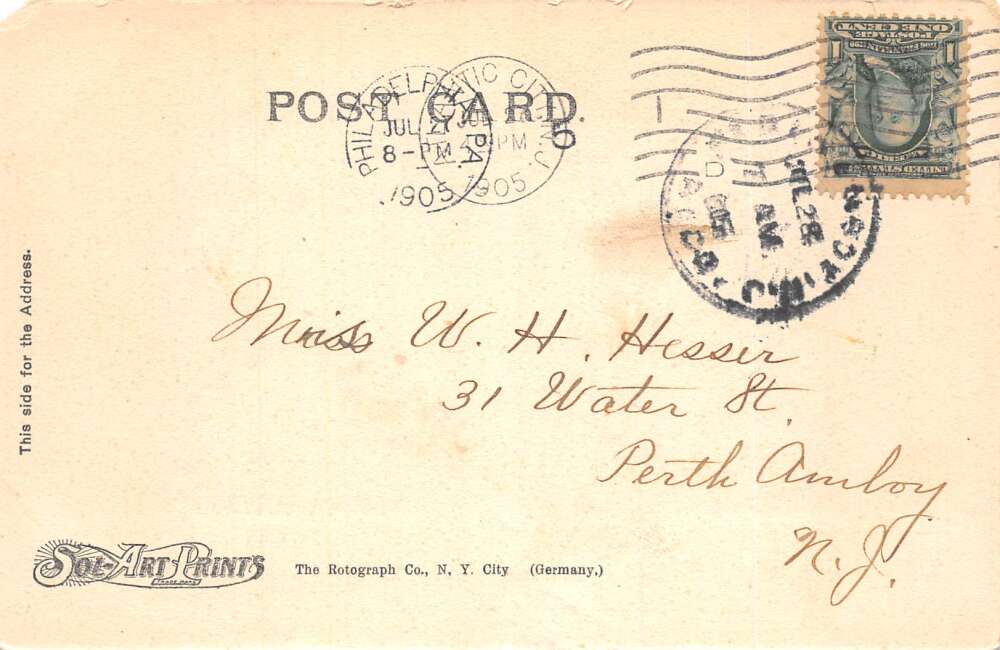 POST CARD.
PHILADELPHIA, PA.
JUL 27
8-PM
1905
ATLANTIC CITY, N.J.
PM
1905
5
ONE CENT
POSTAGE
1
1
JUL 28
AM
N.J.
This side for the Address.
Miss W. H. Hesser
31 Water St.
Perth Amboy
N.J.
SOL-ART PRINTS
TRADE MARK
The Rotograph Co., N. Y. City (Germany.)